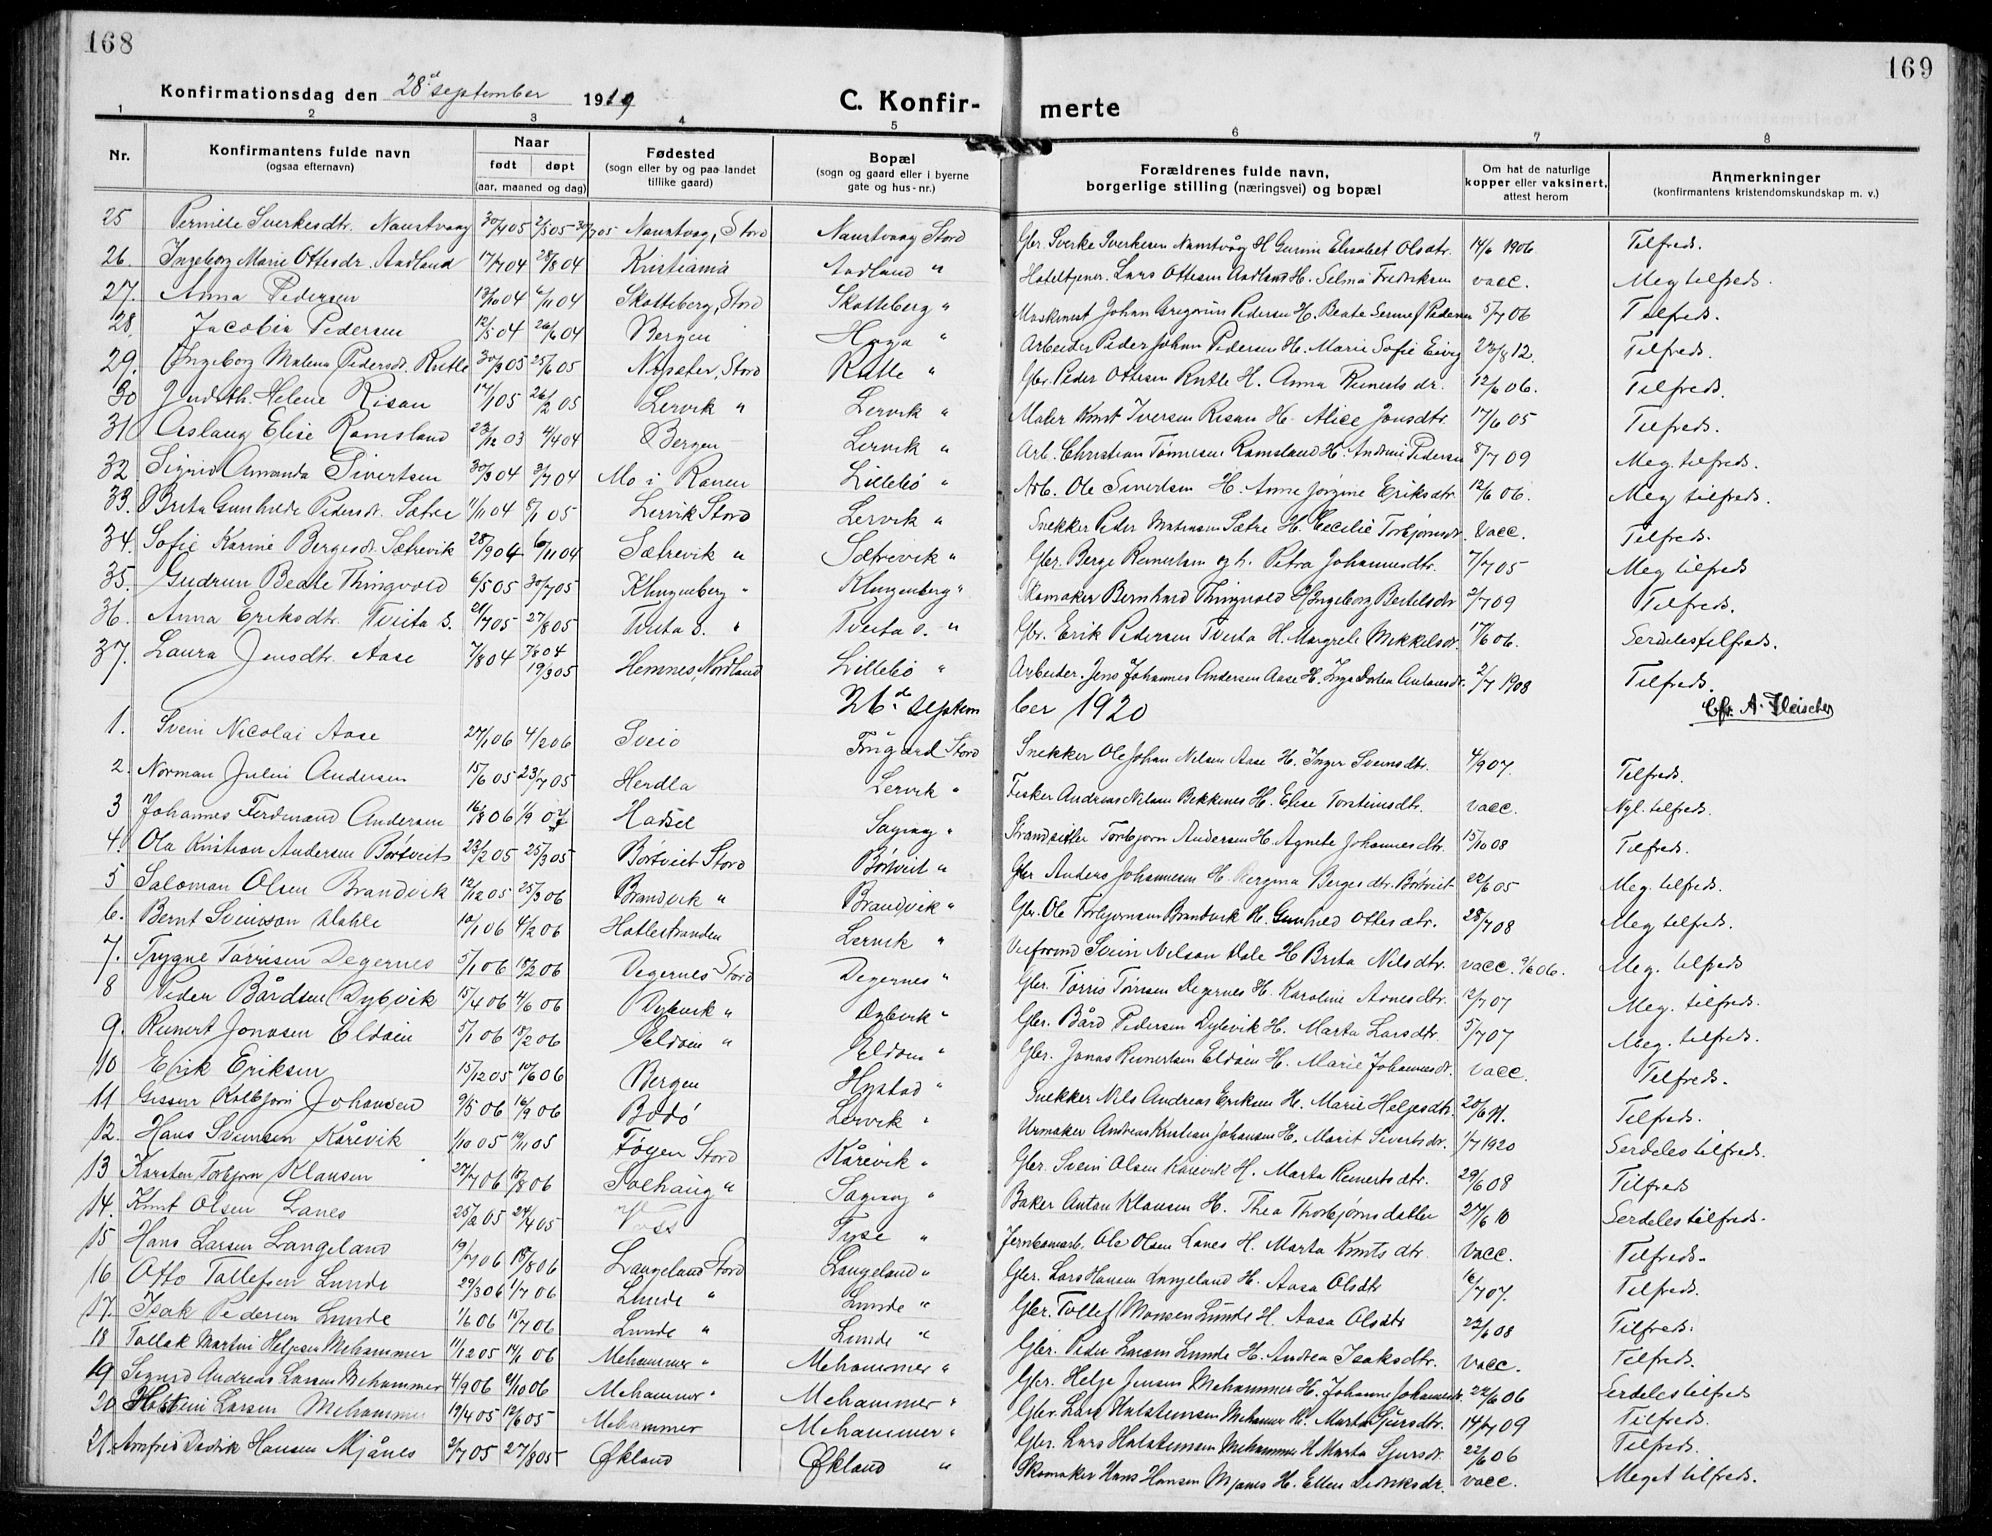 168
169
Konfirmationsdag den 28.d september 1919
C. Konfir-
merte
1 2 3 4 5 6 7 8
Nr. Konfirmantens fulde navn (ogsaa efternavn) Naar født døpt (aar, maaned og dag) Fødested (sogn eller by og paa landet tillike gaard) Bopæl (sogn og gaard eller i byerne gate og hus-nr.) Forældrenes fulde navn, borgerlige stilling (næringsvei) og bopæl Om hat de naturlige kopper eller vaksinert, attest herom Anmerkninger (konfirmantens kristendomskundskap m. v.)
25 Pernille Sverkesdtr. Naustvaag 30/4 05 2/5 05 30/7 05 Naustvaag, Stord Naustvaag Stord Gbr. Sverke Sverkesen Naustvåg H. Gurine Elisabet Olsdtr. 14/6 1906 Tilfreds.
26. Ingeborg Marie Ottesdr. Aadland 17/7 04 28/8 04 Kristiania Aadland " Hoteltjener. Lars Ottesen Aadland H. Selma Fredriksen vacc. Meg tilfreds.
27. Anna Pedersen 13/10 04 6/11 04 Skotteberg, Stord Skotteberg " Maskinist Johan Gregorius Pedersen H. Beate Pedersen 5/7 06 Tilfreds.
28. Jacobia Pedersen 12/5 04 26/6 04 Bergen Haga " Arbeider Peder Johan Pedersen H. Marie Sofie 23/8 12. Tilfreds.
29. Ingeborg Malena Pedersdr. Rutle 30/3 05 25/6 05 Nysæter, Stord Rutle " Gbr. Peder Ottesen Rutle H. Anna Reinertsdr. 12/6 06. Tilfreds.
30 Judith Helene Risan 17/1 05 26/2 05 Lervik " Lervik " Maler Knut Iversen Risan H. Alice Jonsdtr. 17/6 05 Tilfreds.
31 Aslaug Elise Ramsland 23/12 03 4/4 04 Bergen Lervik " Arb. Christian Tønnesen Ramsland H. Andrine Pedersen 8/7 09 Meg. tilfreds.
32 Sigrid Amanda Sivertsen 30/3 04 3/7 04 Mo i Ranen Lillebø " Arb. Ole Sivertsen H. Anne Jørgine Eriksdtr. 12/6 06. Meg tilfreds.
33. Brita Gunhilde Pedersdr. Sætre 1/11 04 8/1 05 Lervik Stord Lervik " Snekker Peder Matiasen Sætre H. Cecilie Torbjørnsdr. vacc. Tilfreds.
34. Sofie Karine Bergesdr. Sætrevik 28/9 04 6/11 04 Sætrevik " Sætrevik " Gbr. Berge Reinertsen og h. Petra Johannesdtr. 7/7 05 Meg tilfreds
35. Gudrun Beate Thingvold 6/5 05 30/7 05 Klungenberg " Klungenberg " Skomaker Bernhard Thingvold H. Ingeborg Bertelsdtr 2/7 09 Tilfreds.
36. Anna Eriksdtr. Tveita s. 21/7 05 27/8 05 Tveita s. " Tveita s. " Gbr. Erik Pedersen Tveita H. Margrete Mikkelsdr. 17/6 06. Serdeles tilfreds.
37. Laura Jensdtr. Aase 7/8 04 7/8 04 19/3 05 Hemnes, Nordland Lillebø " Arbeider. Jens Johannes Andersen Aase H. Inga Dortea Antonsdr. 2/7 1908 Tilfreds.
26.de september 1920
A. Fleischer
1. Svein Nicolai Aase 27/1 06 4/2 06 Sveio Frugård Stord Snekker Ole Johan Nilsen Aase H. Inger Sveinsdtr. 4/9 07. Tilfreds.
2. Norman Julin Andersen 15/6 05 23/7 05 Herdla Lervik " Fisker Andreas Nilsen Bekkenes H. Elise Torsteinsdtr. vacc. Nyl. tilfreds.
3 Johannes Ferdinand Andersen 16/8 06 1/9 07 Hadsel Sagvaag " Strandsitter Torbjørn Andersen H. Agnete Johannesdtr. 15/10 08 Tilfreds.
4. Ola Kristian Andersen Børtveit 23/2 05 25/3 05 Børtveit Stord Børtveit " Gbr Anders Johannesen H. Bergina Bergesdtr. Børtveit 22/6 05 Meg. tilfreds.
5 Salomon Olsen Brandvik 12/12 05 25/3 06 Brandvik " Brandvik " Gbr. Ole Torbjørnsen Brandvik H. Gunhild Ottesdtr. 28/7 08 Meg tilfreds.
6. Bernt Sveinson Dahle 10/1 06 4/2 06 Hatlestranden Lervik " Svein Nilson Dale H. Brita Nilsdtr. vacc. 9/6 06. Meg. tilfreds
7. Trygve Tørrisen Degernes 5/1 06 18/2 06 Degernes Stord Degernes " Gbr. Tørris Tørrisen Degernes H. Karoline Arnesdtr. 12/7 07 Meg. tilfreds.
8 Peder Bårdsen Dybvik 15/4 06 4/6 06 Dybvik " Dybvik " Gbr. Bård Pedersen Dybvik H. Marta Larsdtr 5/7 07 Meg. tilfreds.
9. Reinert Jonasen Eldøen 5/1 06 18/2 06 Eldøen " Eldøen " Gbr. Jonas Reinertsen Eldøen H. Marie Johannesdr. vacc. Tilfreds.
10 Erik Eriksen 15/12 05 10/6 06 Bergen Hystad " Snekker Nils Andreas Eriksen H. Marie Helgesdtr. 20/6 11. Tilfreds.
11 Gissur Kolbjørn Johansen 9/5 06 16/9 06 Bodø Lervik " Urmaker Andreas Kristian Johansen H. Marit Sivertsdr. 1/7 1920 Serdeles tilfreds.
12. Hans Sveinsen Kårevik 1/10 05 19/11 05 Føyen Stord Kårevik " Gbr. Svein Olsen Kårevik H. Marta Reinertsdtr. 29/6 08 Tilfreds
13 Karsten Torbjørn Klausen 27/7 06 18/8 06 Solhaug " Sagvaag " Baker Anton Klausen H. Thea Thorbjørnsdatter 27/6 10 Serdeles tilfreds.
14. Knut Olsen Lanes 25/2 05 24/4 05 Voss Tyse " Jernbanearb. Ole Olsen Lanes H. Marta Knutsdtr. vacc. Tilfreds.
15 Hans Larsen Langeland 19/7 06 18/8 06 Langeland Stord Langeland " Gbr. Lars Hansen Langeland H. Aasa Olsdtr 16/7 07. Tilfreds.
16 Otto Tollefsen Lunde 29/3 06 1/7 06 Lunde " Lunde " Gbr. Tollef Monsen Lunde H. Aasa Olsdtr 22/6 08 Tilfreds.
17. Isak Pedersen Lunde 1/6 06 15/7 06 Lunde " Lunde " Gbr. Peder Larsen Lunde H. Andrea Isaksdtr. vacc. Tilfreds.
18 Tollak Martin Helgesen Mehammer 11/12 05 14/1 06 Mehammer " Mehammer " Gbr. Helge Jensen Mehammer H. Johanne Johannesdr. 22/6 06 Serdeles tilfreds
19 Sigurd Andreas Larsen Mehammer 4/9 06 21/10 06 Mehammer " Mehammer " Gbr. Lars Halsteinsen Mehammer H. Marta Sjursdtr. 14/7 09 Tilfreds.
20 Halstein Larsen Mehammer 19/4 05 12/6 05 Mehammer Mehammer " Gbr. Lars Halsteinsen Mehammer H. Marta Sjursdr. 22/6 06 Tilfreds.
21. Arnfred Didrik Hansen Mjånes 2/7 05 27/8 05 Økland Økland " Skomaker Hans Hansen Mjånes H. Ellen Didriksdr. vacc. Meget tilfreds.